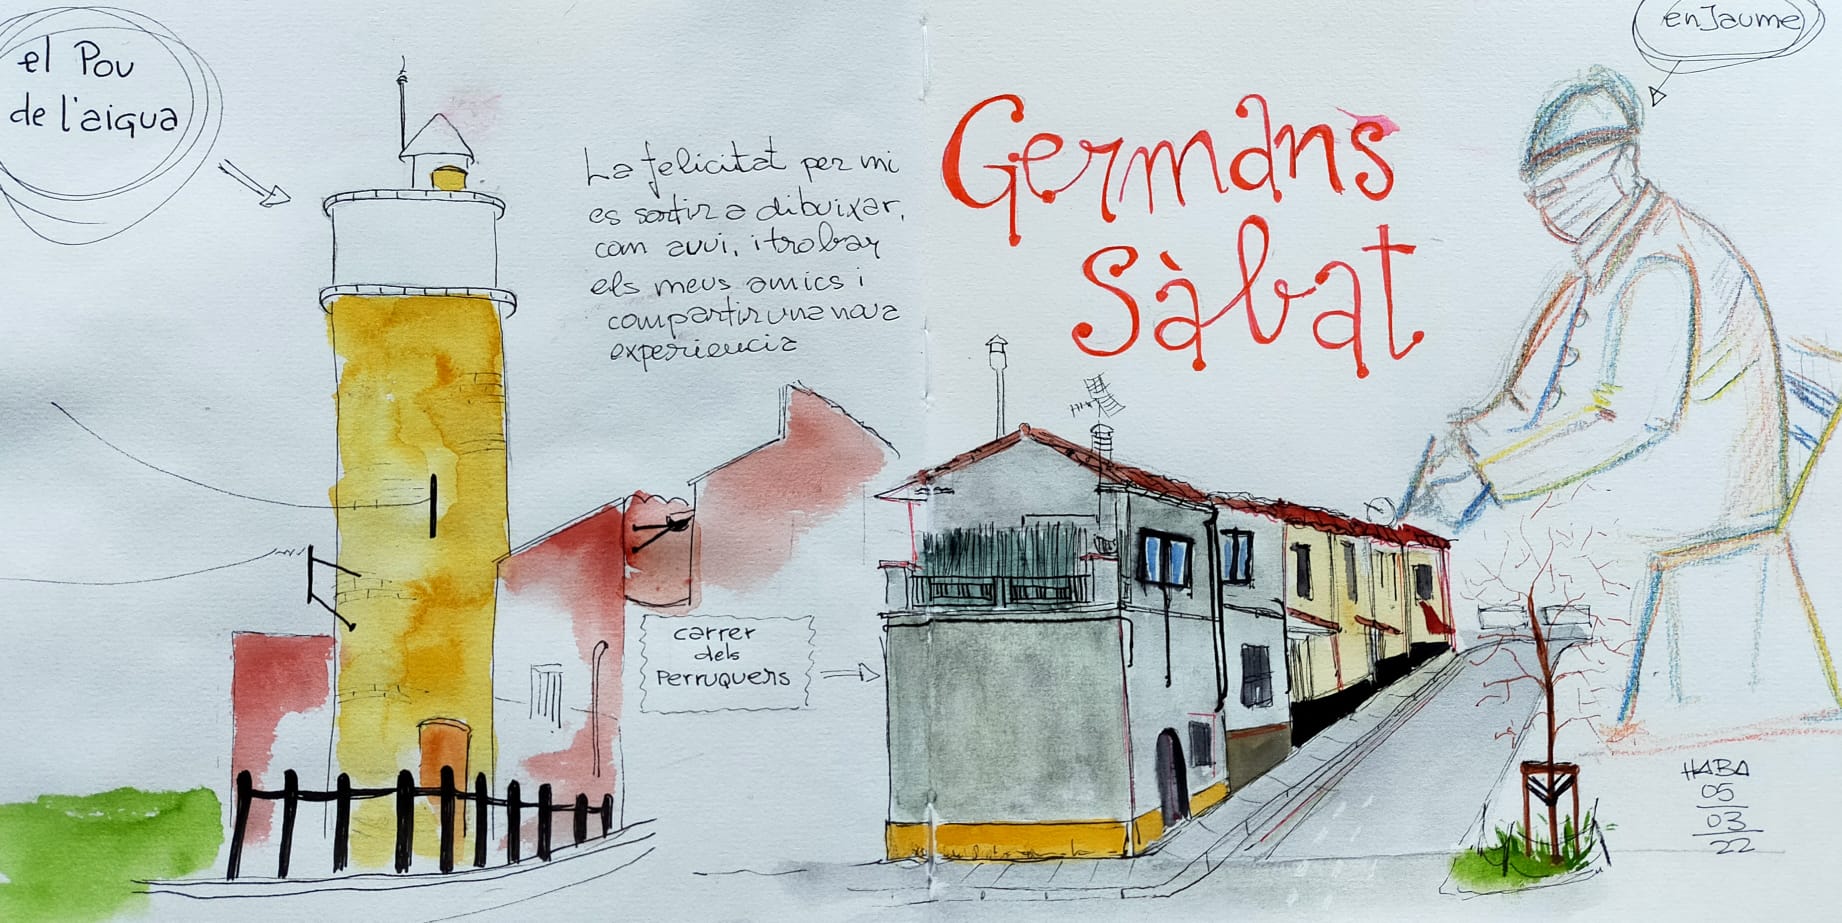 el Pou
de l'aigua
La felicitat per mi
es sortir a dibuixar,
com avui, i trobar
els meus amics i
compartir una nova
experiencia
Germans
Sàbat
en Jaume
carrer
dels
Perruquers
HABA
05
03
22